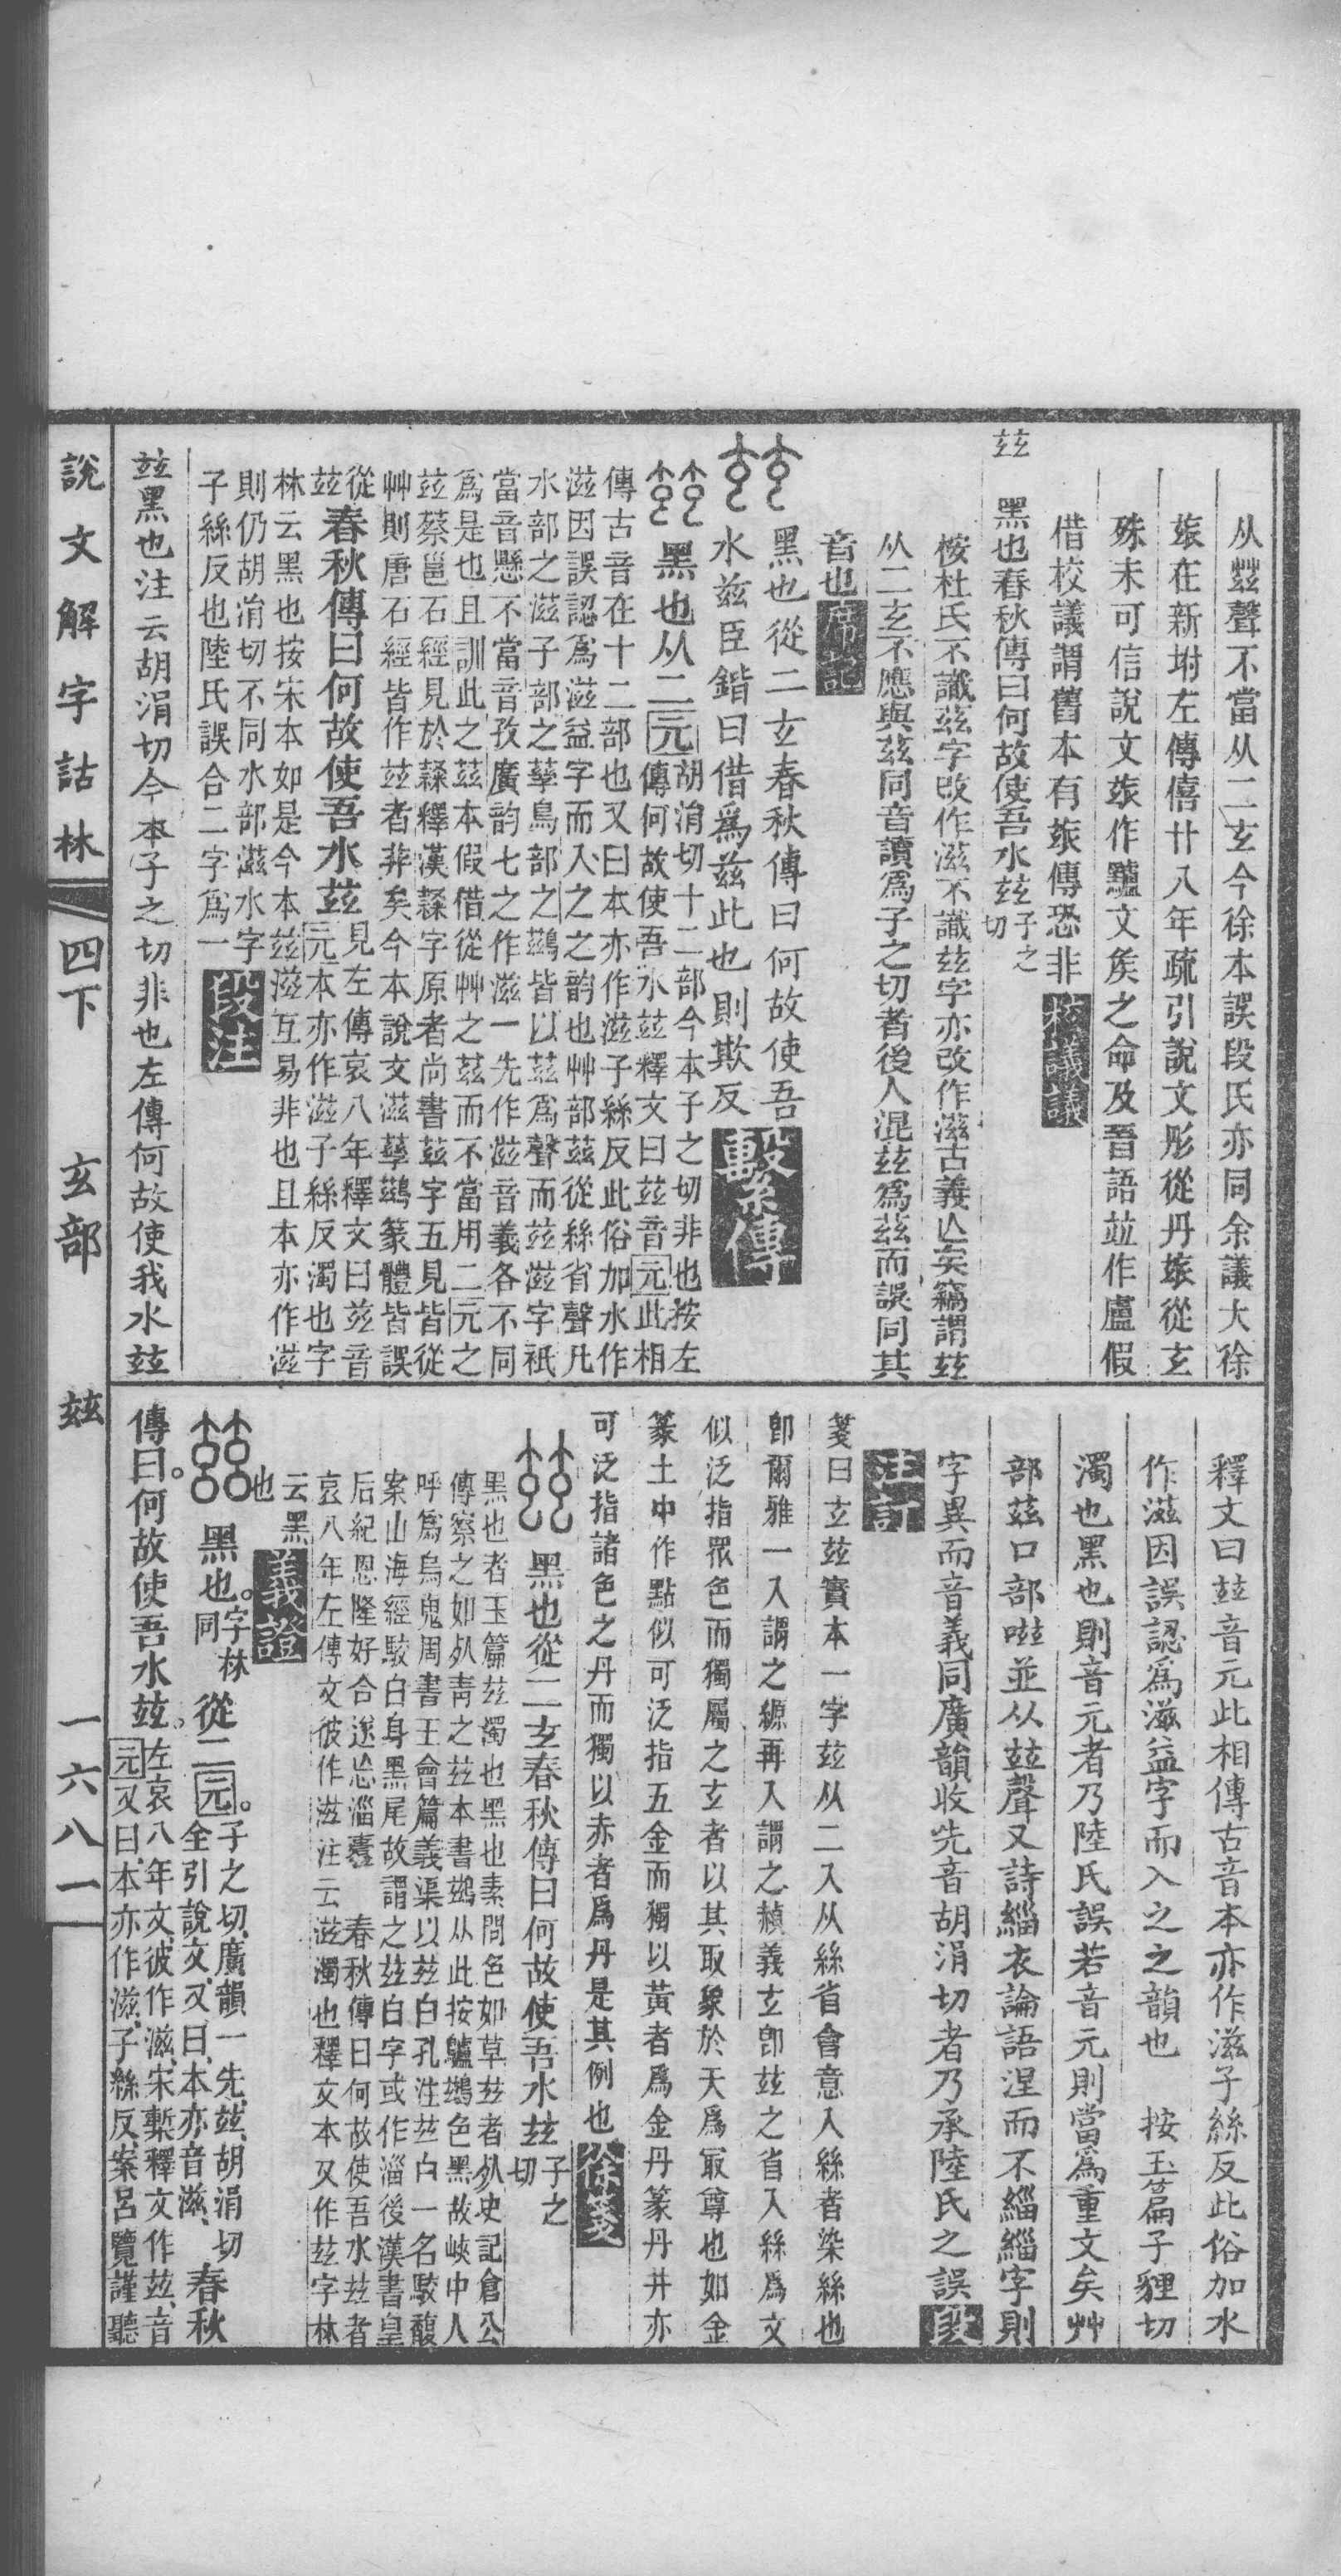 从玆聲不當从二玄今徐本誤段氏亦同余議大徐
玈在新坿左傳僖廿八年疏引說文彤從丹玈從玄
殊未可信說文玈作驢文矦之命及晉語竝作盧假
借校議謂舊本有玈傳恐非校議議
玆
黑也春秋傳曰何故使吾水玆子之切
桉杜氏不識玆字改作滋不識玆字亦改作滋古義亾矣竊謂玆
从二玄不應與茲同音讀爲子之切者後人混玆爲茲而誤同其
音也席記
黑也從二玄春秋傳曰何故使吾
水玆臣鍇曰借爲玆此也則欺反繫傳
黑也从二元胡涓切十二部今本子之切非也按左
傳何故使吾水玆釋文曰玆音元此相
傳古音在十二部也又曰本亦作滋子絲反此俗加水作
滋因誤認爲滋益字而入之之韵也艸部茲從絲省聲凡
水部之滋子部之孳鳥部之鷀皆以茲爲聲而玆滋字祇
當音懸不當音孜廣韵七之作滋一先作滋音義各不同
爲是也且訓此之茲本假借從艸之茲而不當用二元之
玆蔡邕石經見於隸釋漢隸字原者尚書茲字五見皆從
艸則唐石經皆作玆者非矣今本說文滋孳鷀篆體皆誤
從玆
春秋傳曰何故使吾水玆見左傳哀八年釋文曰玆音
元本亦作滋子絲反濁也字
林云黑也按宋本如是今本玆滋互易非也且本亦作滋
則仍胡涓切不同水部滋水字
子絲反也陸氏誤合二字爲一段注
玆黑也注云胡涓切今本子之切非也左傳何故使我水玆
釋文曰玆音元此相傳古音本亦作滋子絲反此俗加水
作滋因誤認爲滋益字而入之之韻也 按玉篇子貍切
濁也黑也則音元者乃陸氏誤若音元則當爲重文矣艸
部茲口部嗞並从玆聲又詩緇衣論語涅而不緇緇字則
字異而音義同廣韻收先音胡涓切者乃承陸氏之誤段
注訂
箋曰玄玆實本一字玆从二入从絲省會意入絲者染絲也
卽爾雅一入謂之縓再入謂之赬義玄卽玆之省入絲爲文
似泛指眾色而獨屬之玄者以其取象於天爲㝡尊也如金
篆土中作點似可泛指五金而獨以黃者爲金丹篆丹井亦
可泛指諸色之丹而獨以赤者爲丹是其例也徐箋
黑也從二玄春秋傳曰何故使吾水玆子之切
黑也者玉篇玆濁也黑也素問色如草玆者死史記倉公
傳察之如死靑之玆本書鷀从此按鸕鷀色黑故峽中人
呼爲烏鬼周書王會篇義渠以玆白孔注玆白一名駮馥
案山海經駮白身黑尾故謂之玆白字或作淄後漢書皇
后紀恩隆好合遂忘淄蠹 春秋傳曰何故使吾水玆者
哀八年左傳文彼作滋注云滋濁也釋文本又作玆字林
云黑
也義證
黑也。字林同從二元。子之切、廣韻一先、玆、胡涓切
全引說文、又曰、本亦音滋、春秋
傳曰。何故使吾水玆。左哀八年文、彼作滋、宋槧釋文作玆、音
元又曰、本亦作滋、子絲反案呂覽謹聽
說文解字詁林 四下 玄部 玆 一六八一